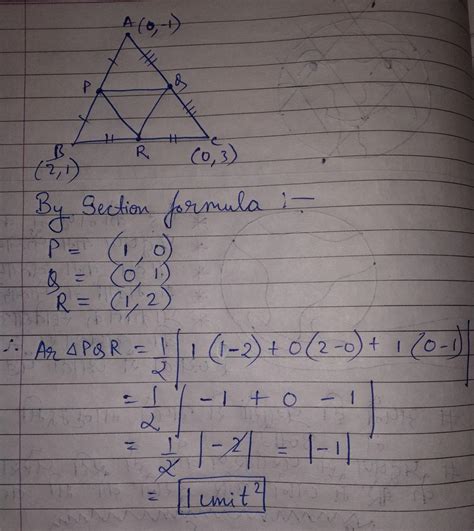 A(0,-1)
P Q
B R C
(2,1) (0,3)
By Section formula :-
P = (1, 0)
Q = (0 1)
R = (1, 2)
∴ Ar △PQR = 1/2 | 1 (1-2) + 0 (2-0) + 1 (0-1) |
= 1/2 | -1 + 0 - 1 |
= 1/2 |-2| = |-1|
= 1 unit²